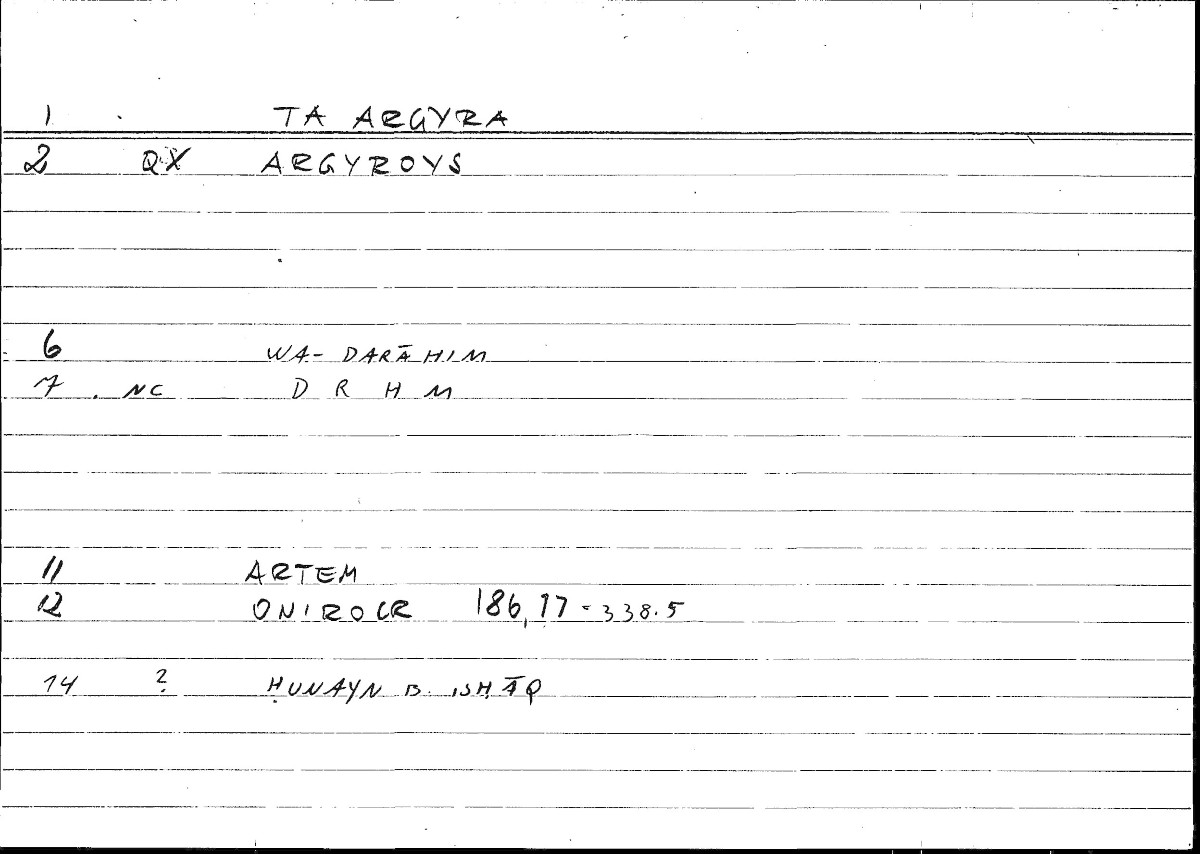 1 TA ARGYRA
2 QX ARGYROYS
6 WA- DARĀHIM
7 NC D R H M
11 ARTEM
12 ONIROCR 186,17 - 338.5
14 ? ḤUNAYN B. ISḤĀQ